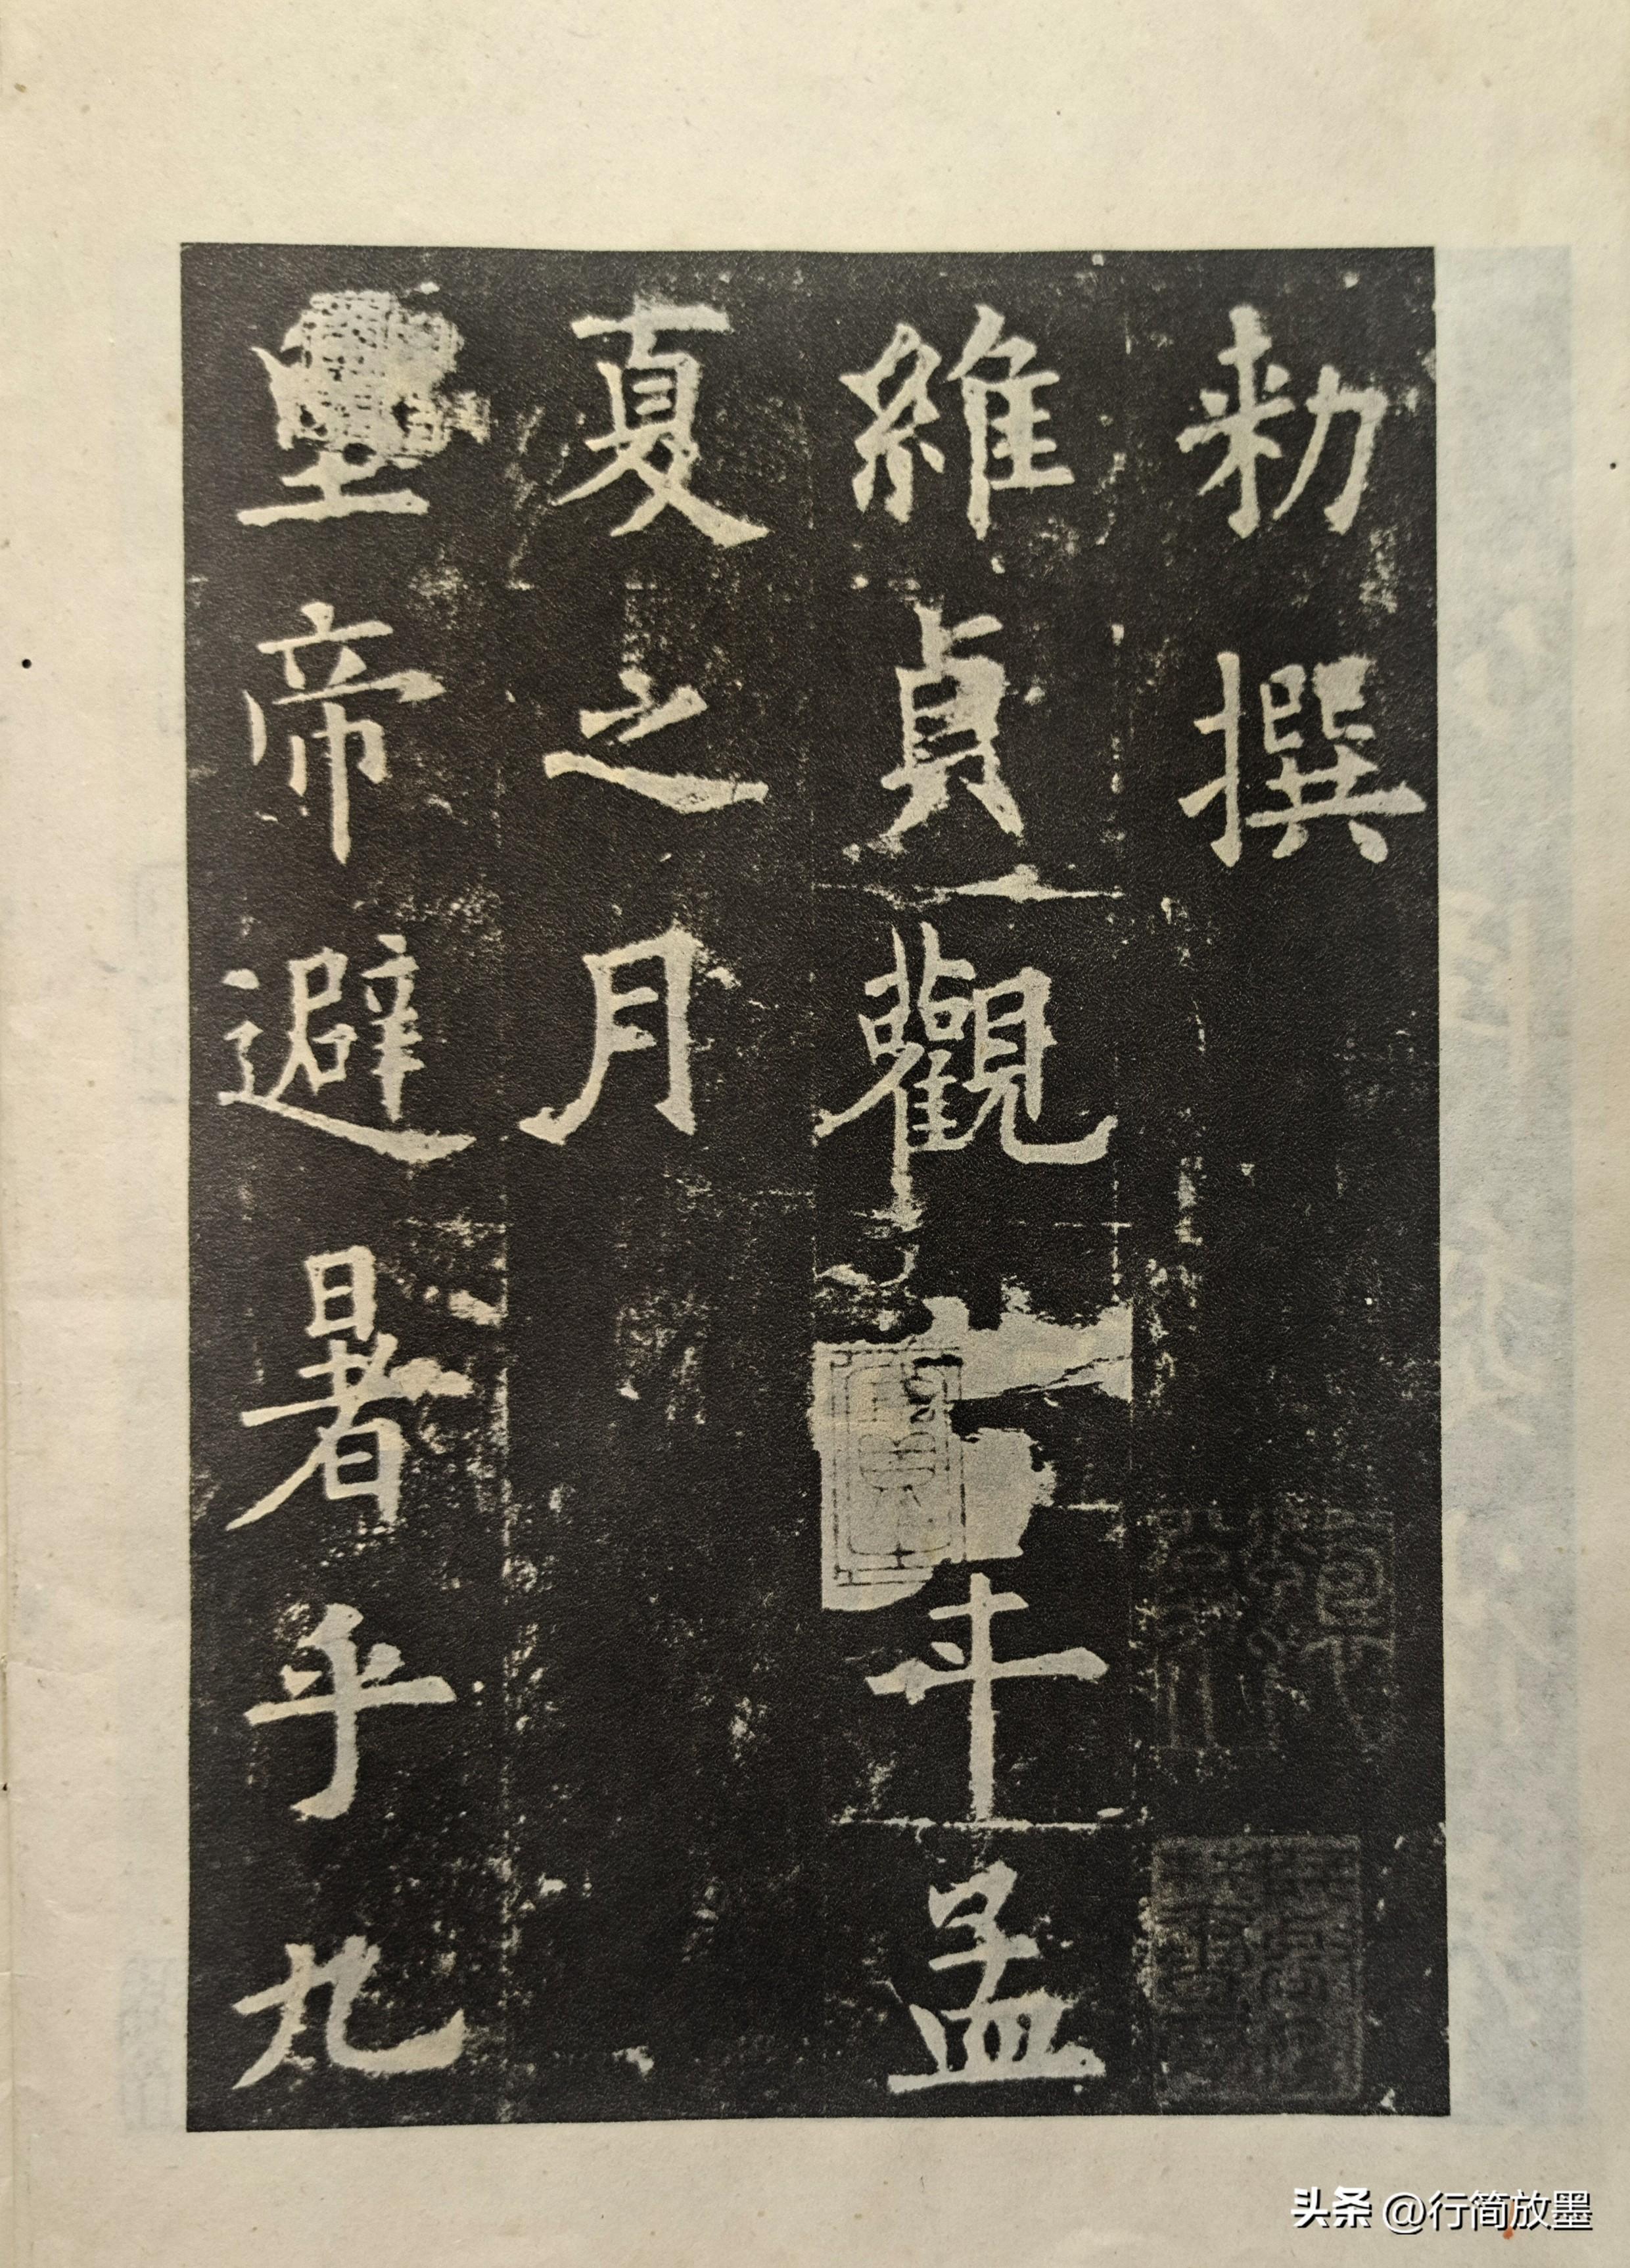 勑撰
維貞觀年孟
夏之月
皇帝避暑乎九
头条 @行简放墨